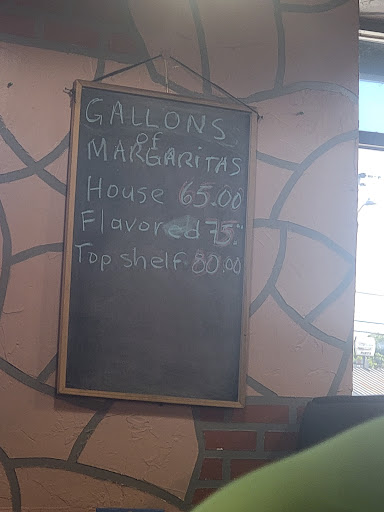 GALLONS
of
MARGARITAS
House 65.00
Flavored 75."
Top shelf. 80.00